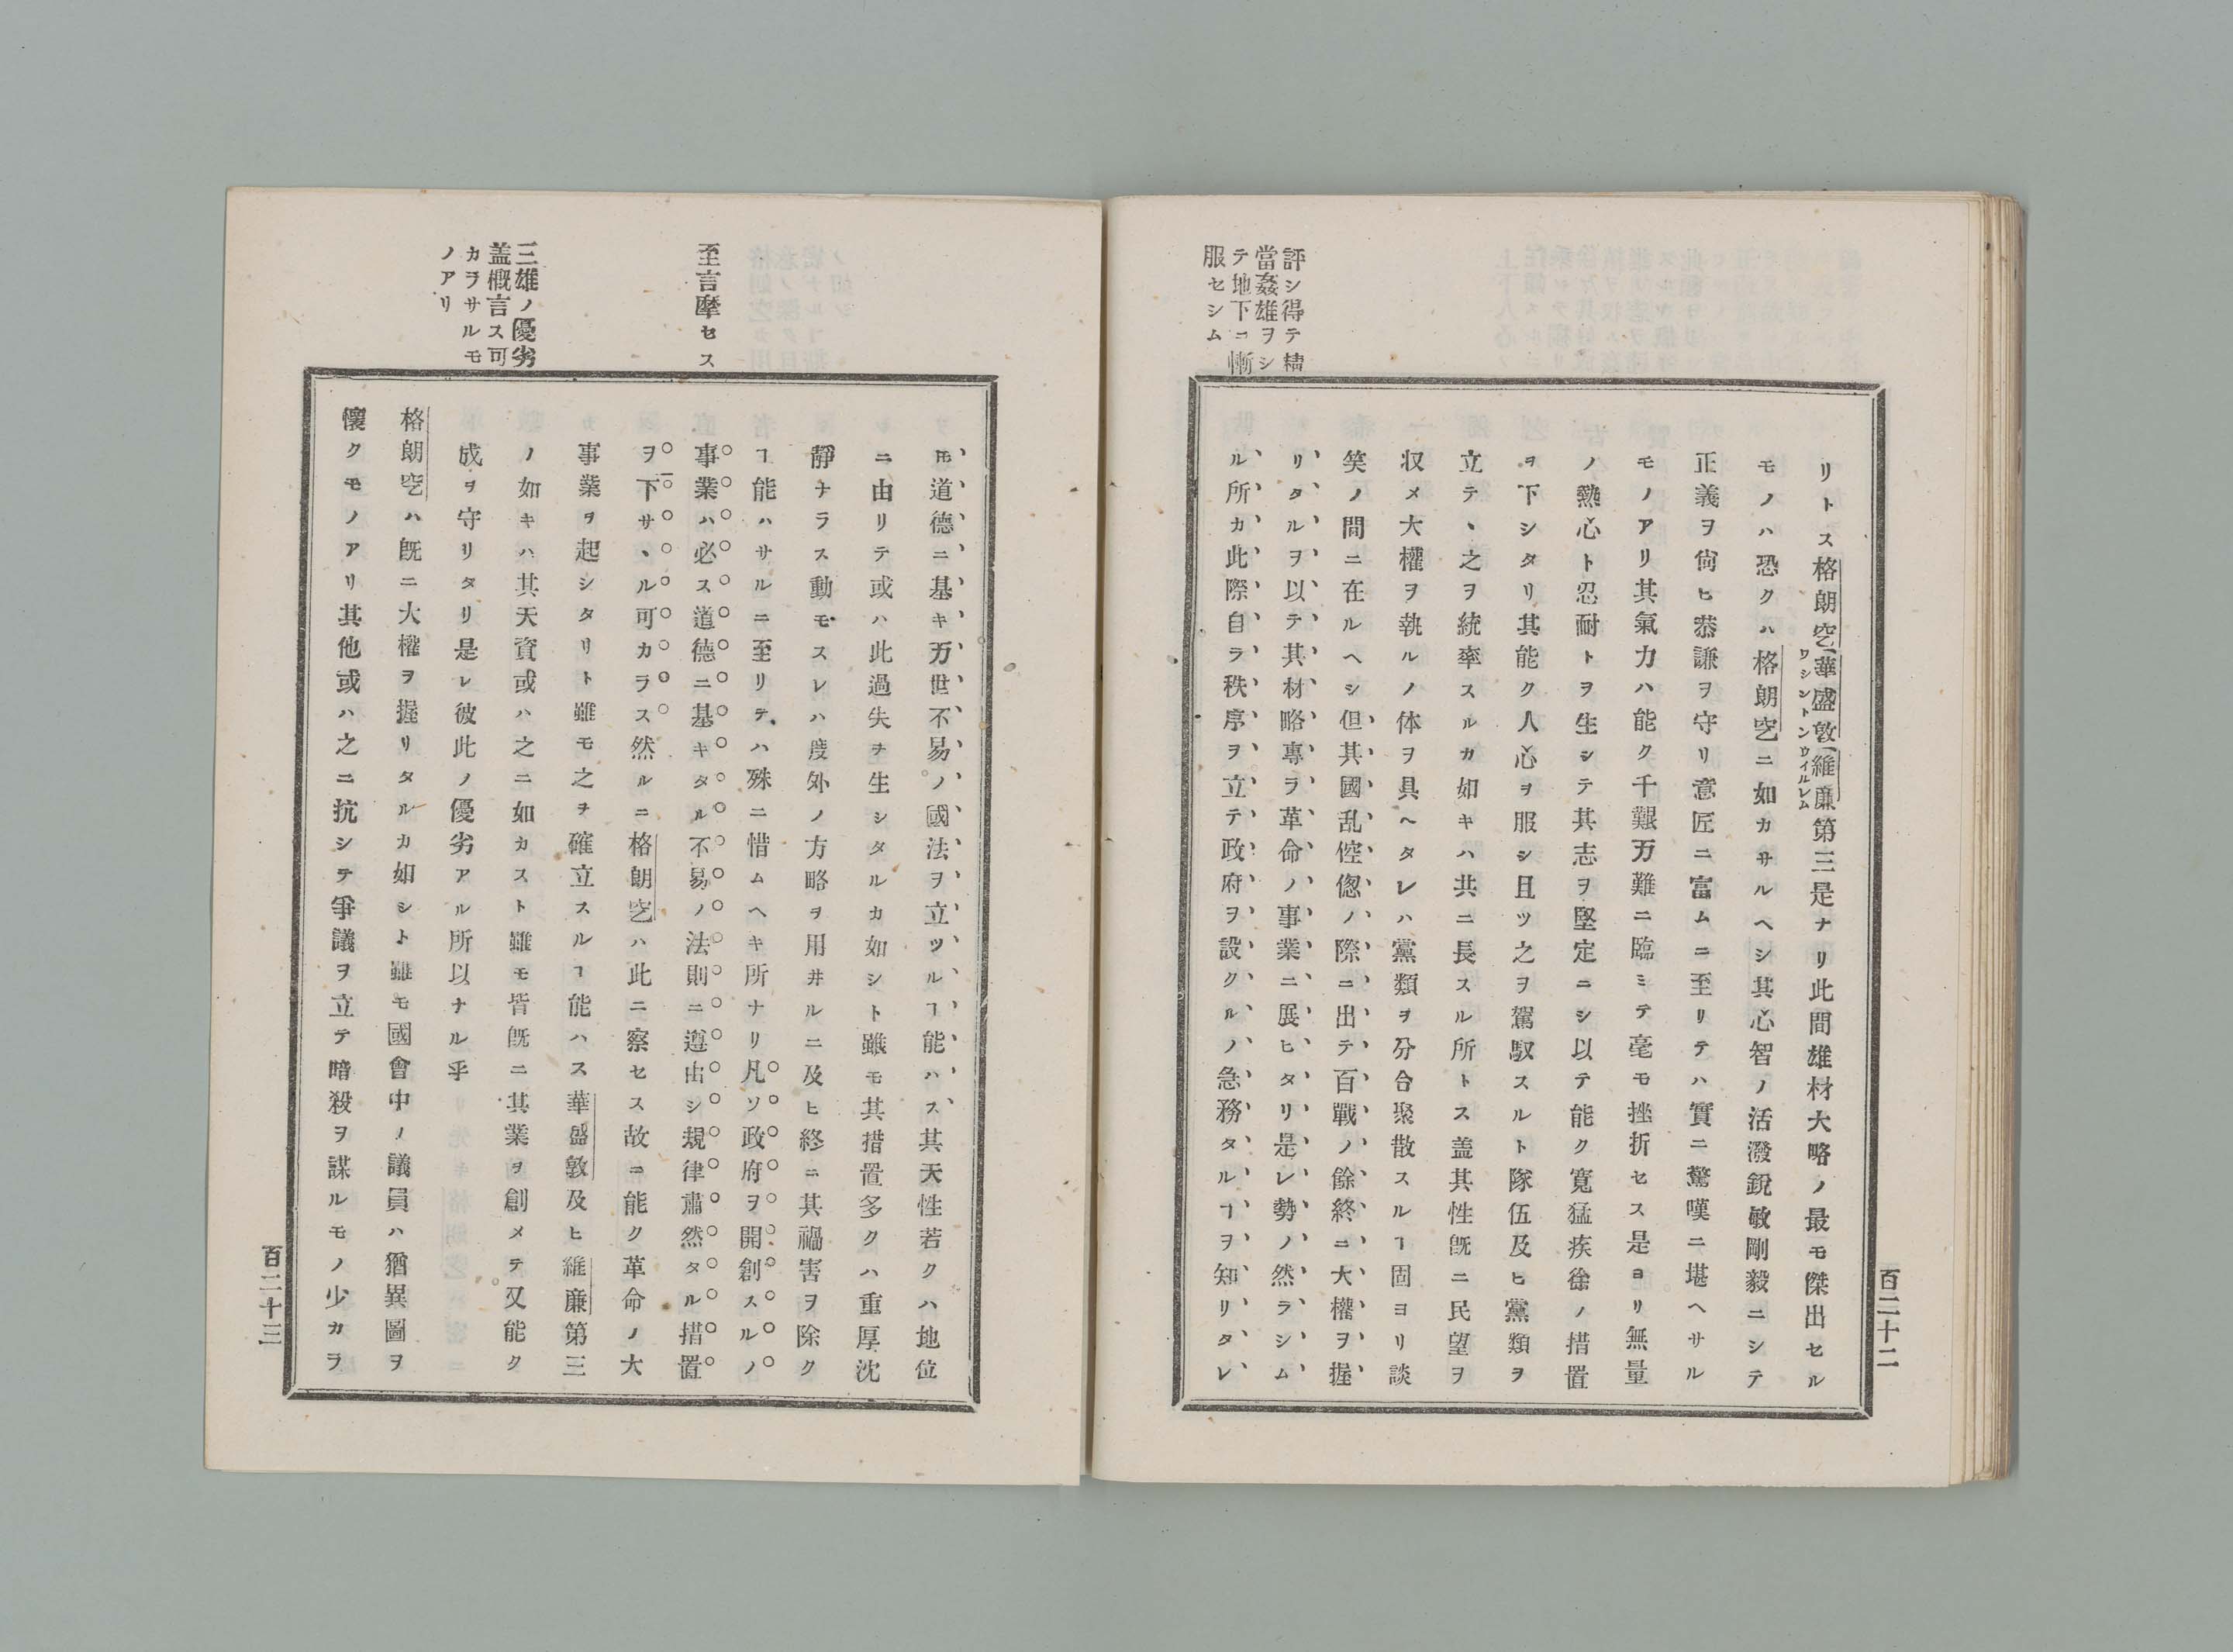 百二十二
リトス格朗空華盛敦維廉第三是ナリ此間雄材大略ノ最モ傑出セル
ワシントン
ウィルレム
モノハ恐クハ格朗空ニ如カサルヘシ其心智ノ活潑銳敏剛毅ニシテ
正義ヲ尙ヒ恭謙ヲ守リ意匠ニ富ムニ至リテハ實ニ驚嘆ニ堪ヘサル
モノアリ其氣力ハ能ク千艱万難ニ臨ミテ毫モ挫折セス是ヨリ無量
ノ熱心ト忍耐トヲ生シテ其志ヲ堅定ニシ以テ能ク寬猛疾徐ノ措置
ヲ下シタリ其能ク人心ヲ服シ且ツ之ヲ駕馭スルト隊伍及ヒ黨類ヲ
立テヽ之ヲ統率スルカ如キハ共ニ長スル所トス盖其性旣ニ民望ヲ
収メ大權ヲ執ルノ体ヲ具ヘタレハ黨類ヲ分合聚散スルヿ固ヨリ談
笑ノ間ニ在ルヘシ但其國乱倥偬ノ際ニ出テ百戰ノ餘終ニ大權ヲ握
リタルヲ以テ其材略專ラ革命ノ事業ニ展ヒタリ是レ勢ノ然ラシム
ル所カ此際自ラ秩序ヲ立テ政府ヲ設クルノ急務タルヿヲ知リタレ
評シ得テ精
當姦雄ヲシ
テ地下ニ慚
服セシム
𪜈道德ニ基キ万世不易ノ國法ヲ立ツルヿ能ハス其天性若クハ地位
ニ由リテ或ハ此過失ヲ生シタルカ如シト雖モ其措置多クハ重厚沈
靜ナラス動モスレハ度外ノ方略ヲ用井ルニ及ヒ終ニ其禍害ヲ除ク
ヿ能ハサルニ至リテハ殊ニ惜ムヘキ所ナリ凡ソ政府ヲ開創スルノ
事業ハ必ス道德ニ基キタル不易ノ法則ニ遵由シ規律肅然タル措置
ヲ下サヽル可カラス然ルニ格朗空ハ此ニ察セス故ニ能ク革命ノ大
事業ヲ起シタリト雖モ之ヲ確立スルヿ能ハス華盛敦及ヒ維廉第三
ノ如キハ其天資或ハ之ニ如カスト雖モ皆旣ニ其業ヲ創メテ又能ク
成ヲ守リタリ是レ彼此ノ優劣アル所以ナル乎
格朗空ハ旣ニ大權ヲ握リタルカ如シト雖モ國會中ノ議員ハ猶異圖ヲ
懷クモノアリ其他或ハ之ニ抗シテ爭議ヲ立テ暗殺ヲ謀ルモノ少カラ
至言摩セス
三雄ノ優劣
盖槪言ス可
カラサルモ
ノアリ
百二十三